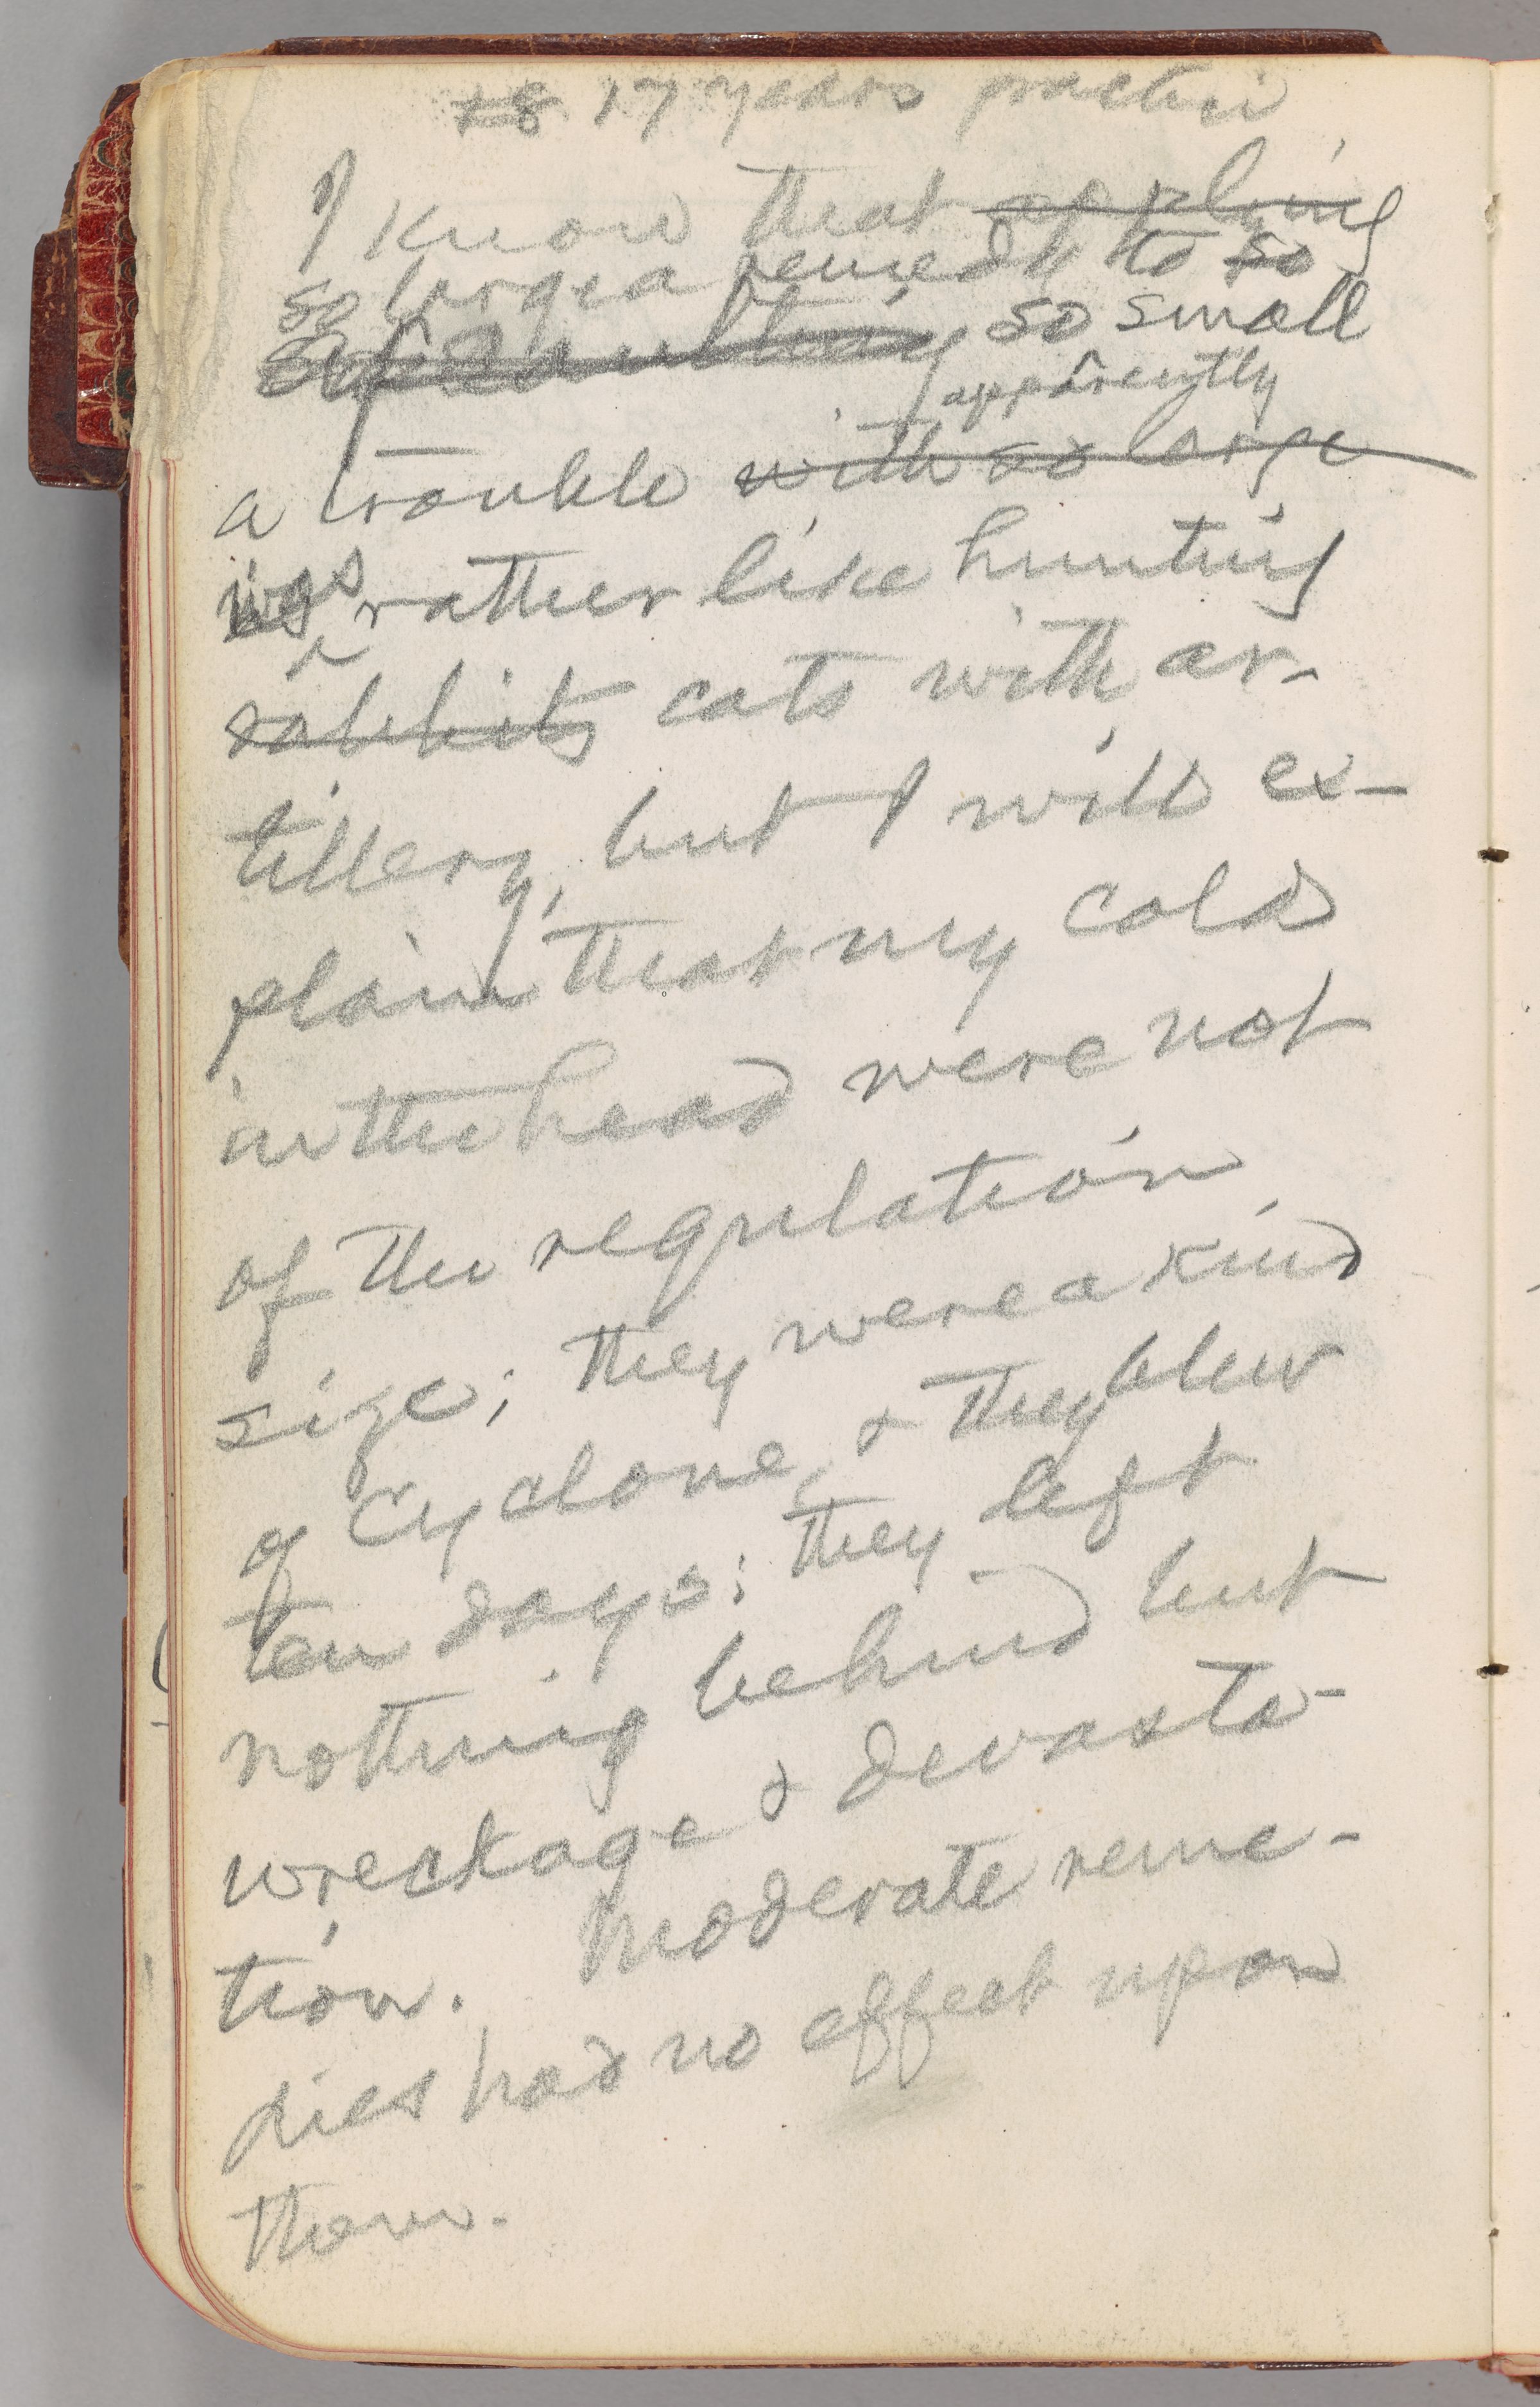 18 17 years practice
I know that applying
so large a remedy to so
so small
apparently
a trouble with so large
was rather like hunting
rabbits cats with ar-
tillery, but I will ex-
plain that my cold
in the head were not
of the regulation
size; they were a kind
of Cyclone, & they blew
ten days; they left
nothing behind but
wreckage & devasta-
tion. Moderate reme-
dies had no effect upon
them.